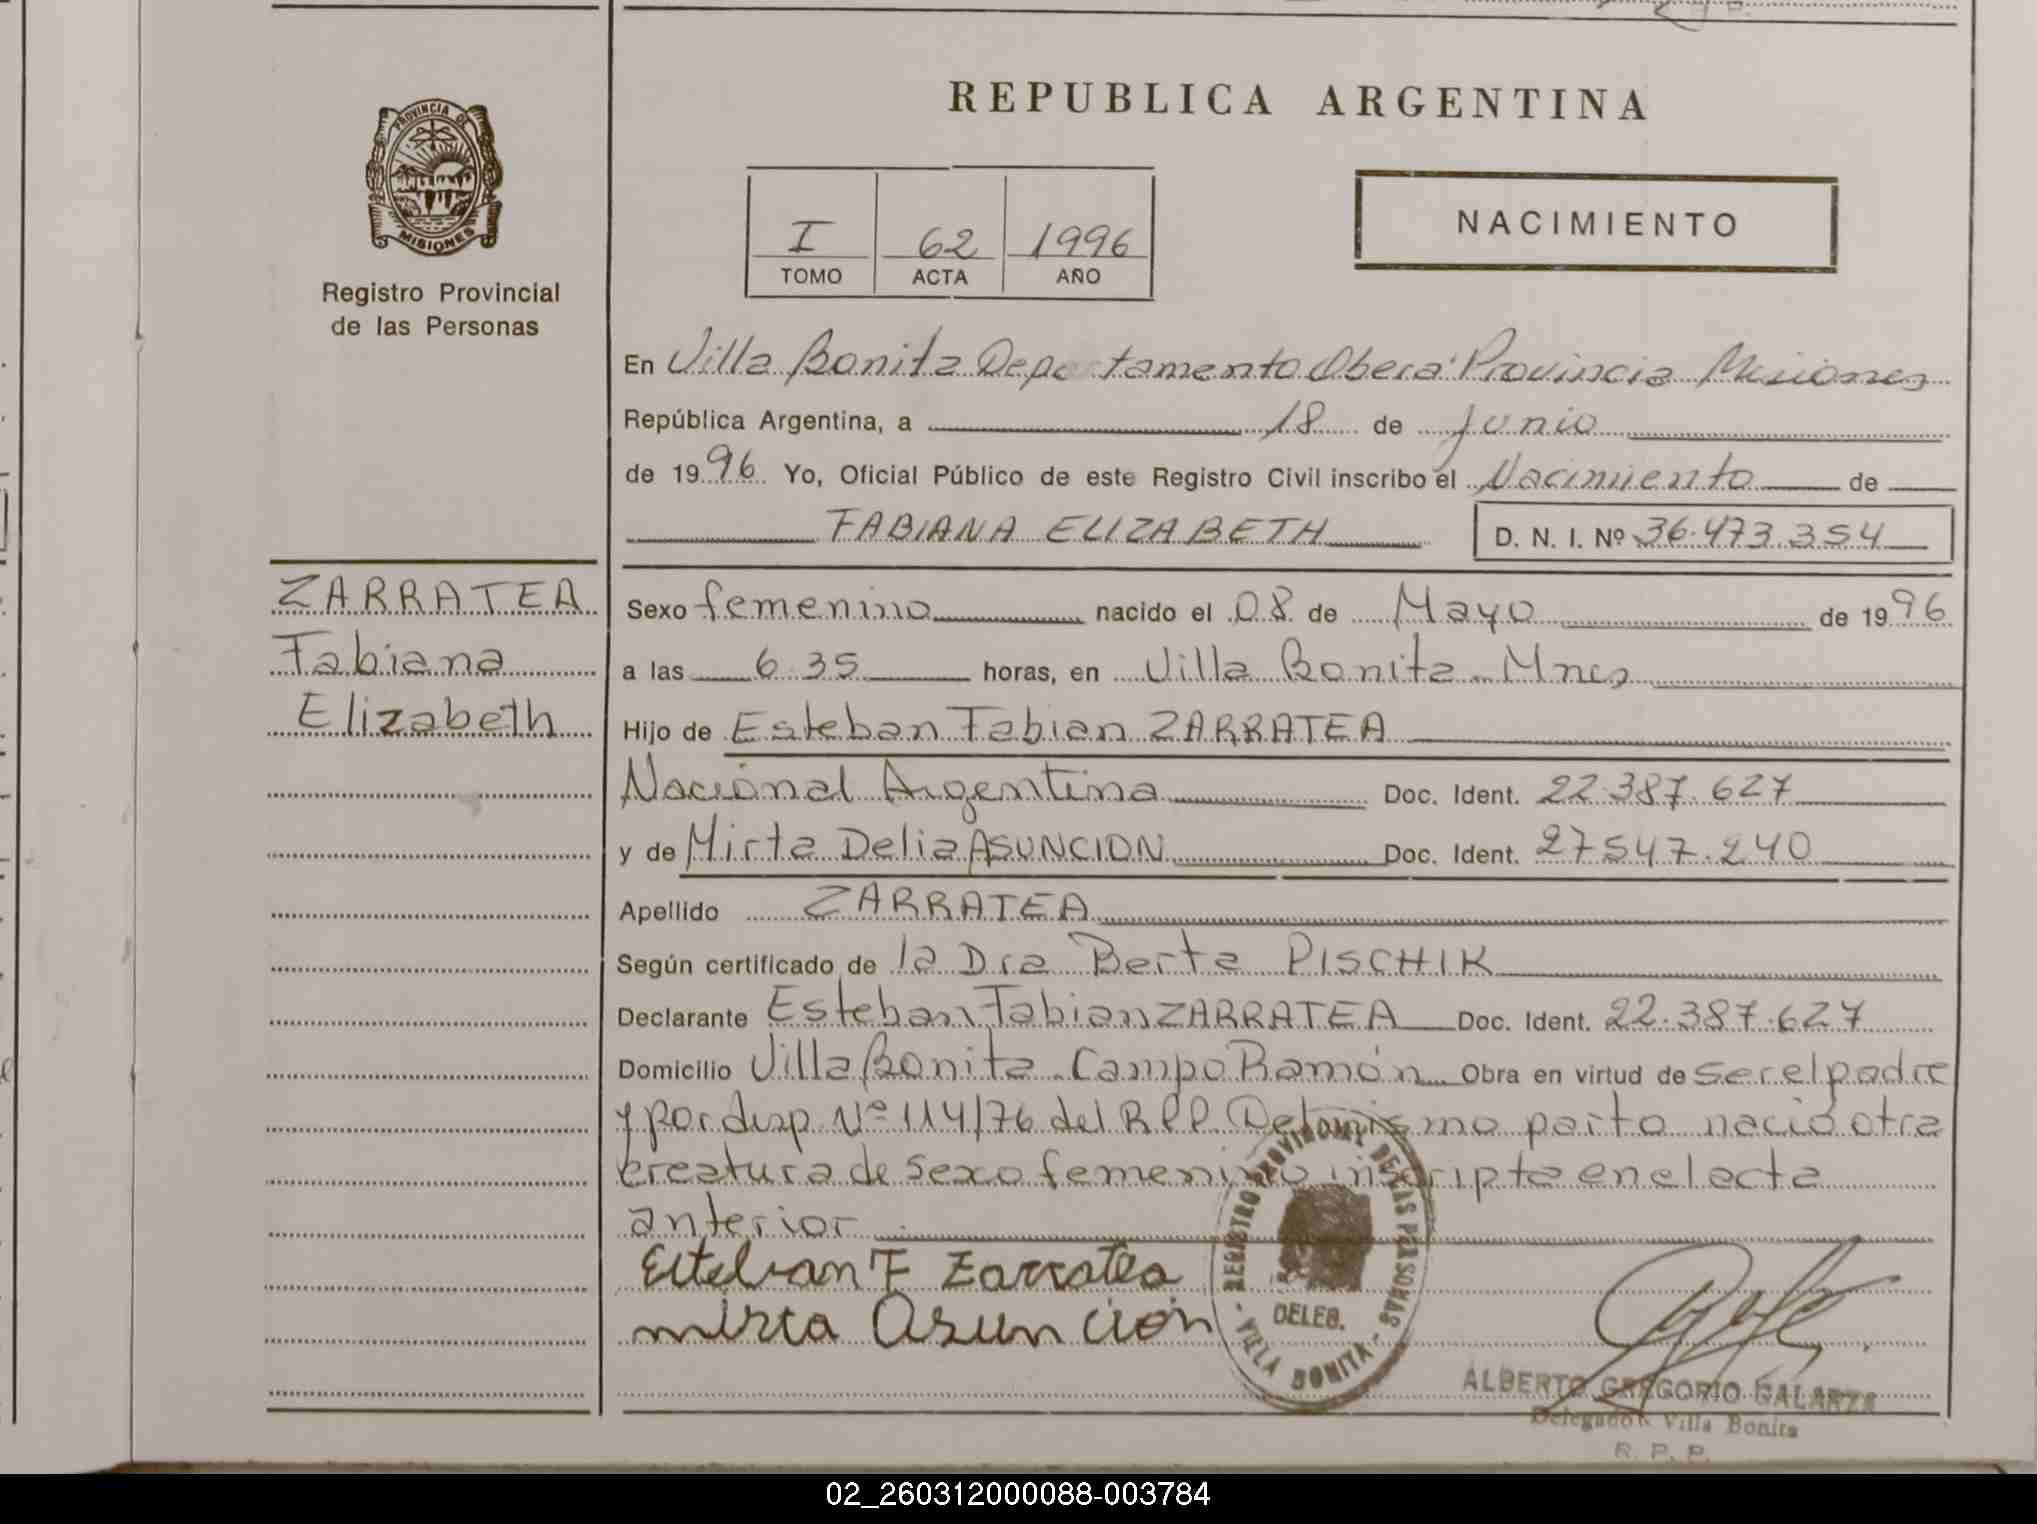 REPUBLICA ARGENTINA
PROVINCIA DE
MISIONES
Registro Provincial
de las Personas
I 62 1996
TOMO ACTA AÑO
NACIMIENTO
En Villa Bonita Departamento Oberá Provincia Misiones
República Argentina, a 18 de Junio
de 1996 Yo, Oficial Público de este Registro Civil inscribo el Nacimiento de
FABIANA ELIZABETH D. N. I. Nº 36.473.354
ZARRATEA
Fabiana
Elizabeth
Sexo femenino nacido el 08 de Mayo de 1996
a las 6.35 horas, en Villa Bonita Mnes
Hijo de Esteban Fabian ZARRATEA
Nacional Argentina Doc. Ident. 22.387.627
y de Mirta Delia ASUNCION Doc. Ident. 27.547.240
Apellido ZARRATEA
Según certificado de la Dra Berta PISCHIK
Declarante Esteban Fabian ZARRATEA Doc. Ident. 22.387.627
Domicilio Villa Bonita Campo Ramón Obra en virtud de ser el padre
y por disp. Nº 114/76 del R.P.P. Del mismo parto nació otra
creatura de sexo femenino inscripta en el acta
anterior
Esteban F Zarratea
mirta Asunción
REGISTRO PROVINCIAL DE LAS PERSONAS
DELEG.
- VILLA BONITA -
ALBERTO GREGORIO GALARZA
Delegado Villa Bonita
R. P. P.
02_260312000088-003784